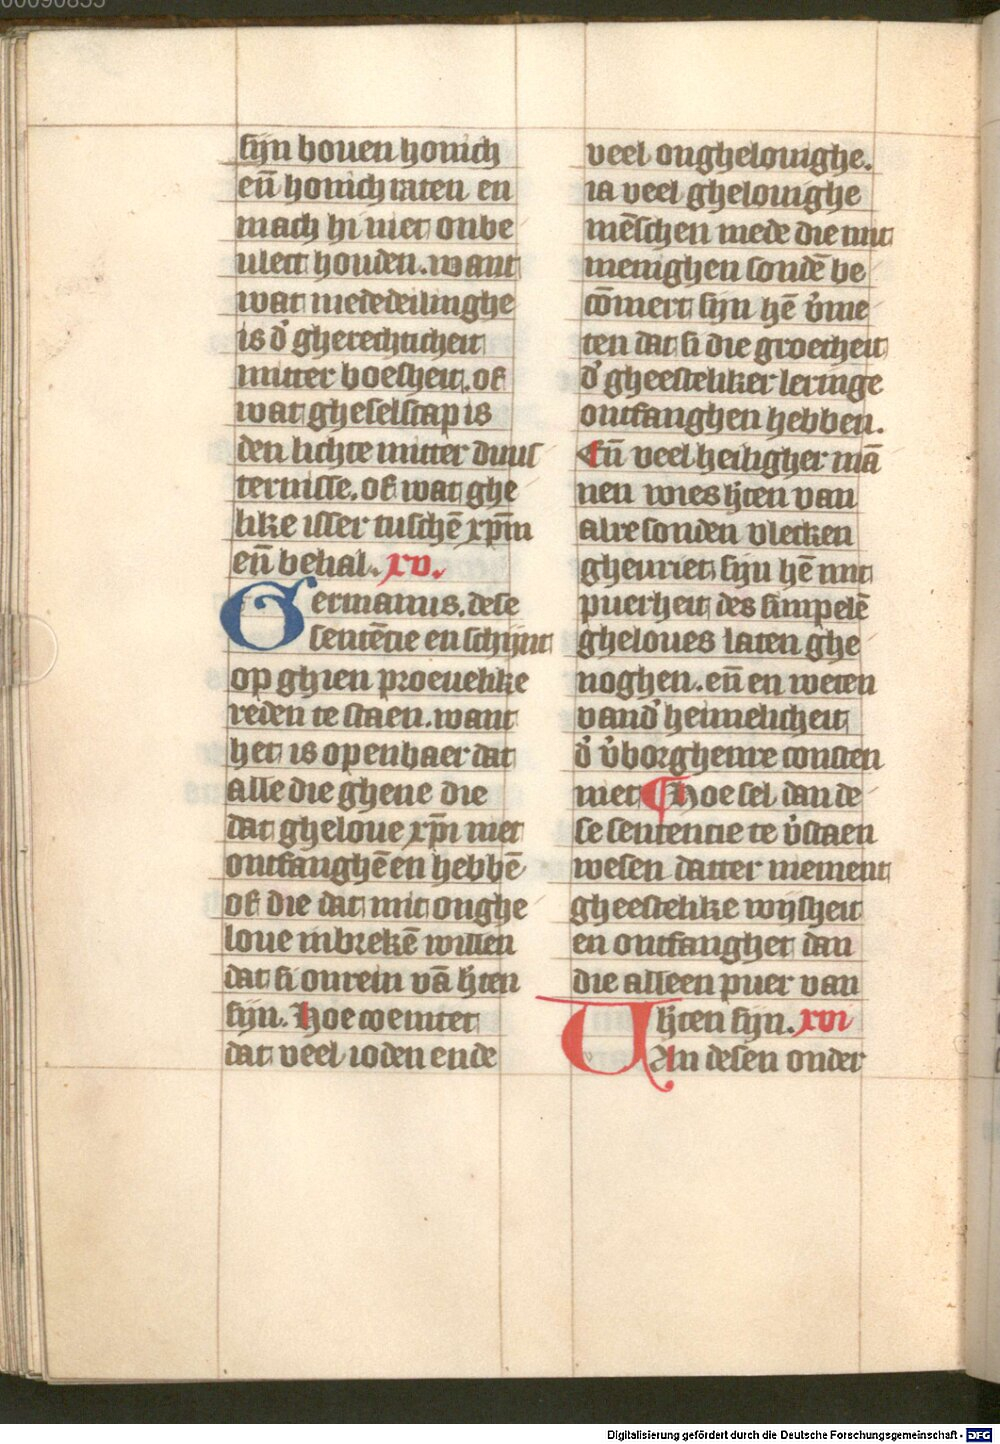 sijn bouen honich
eñ honich raten en
mach hi niet onbe
ulect houden. want
wat mededeilinghe
is d' gherechticheit
mitter boesheit. of
wat gheselscap is
den lichte mitter duus
ternisse. of wat ghe
like isser tuschē xp̄m
eñ belial. xv.
Germanus. dese
sentēcie en schijnt
op ghien proeuelike
reden te staen. want
het is openbaer dat
alle die ghene die
dat gheloue xp̄i niet
ontfanghē en hebbē
of die dat mit onghe
loue inbrekē willen
dat si onrein vā h'ten
sijn. Hoe coemtet
dat veel ioden ende
veel onghelouighe.
ia veel ghelouighe
mēschen mede die mit
menighen sondē be
cōmert sijn hē v'me
ten dat si die groetheit
d' gheesteliker leringe
ontfanghen hebben.
Eñ veel heiligher mā
nen wies h'ten van
alre sonden vlecken
gheuriet sijn hē mit
puerheit des simpelē
gheloues laten ghe
noghen. eñ en weten
vand' heimelicheit
d' v'borghenre consten
niet Hoe sel dan de
se sentencie te v'staen
wesen datter niement
gheestelike wijsheit
en ontfanghet dan
die alleen puer van
h'ten sijn. xvi
VAn desen onder
Digitalisierung gefördert durch die Deutsche Forschungsgemeinschaft - DFG